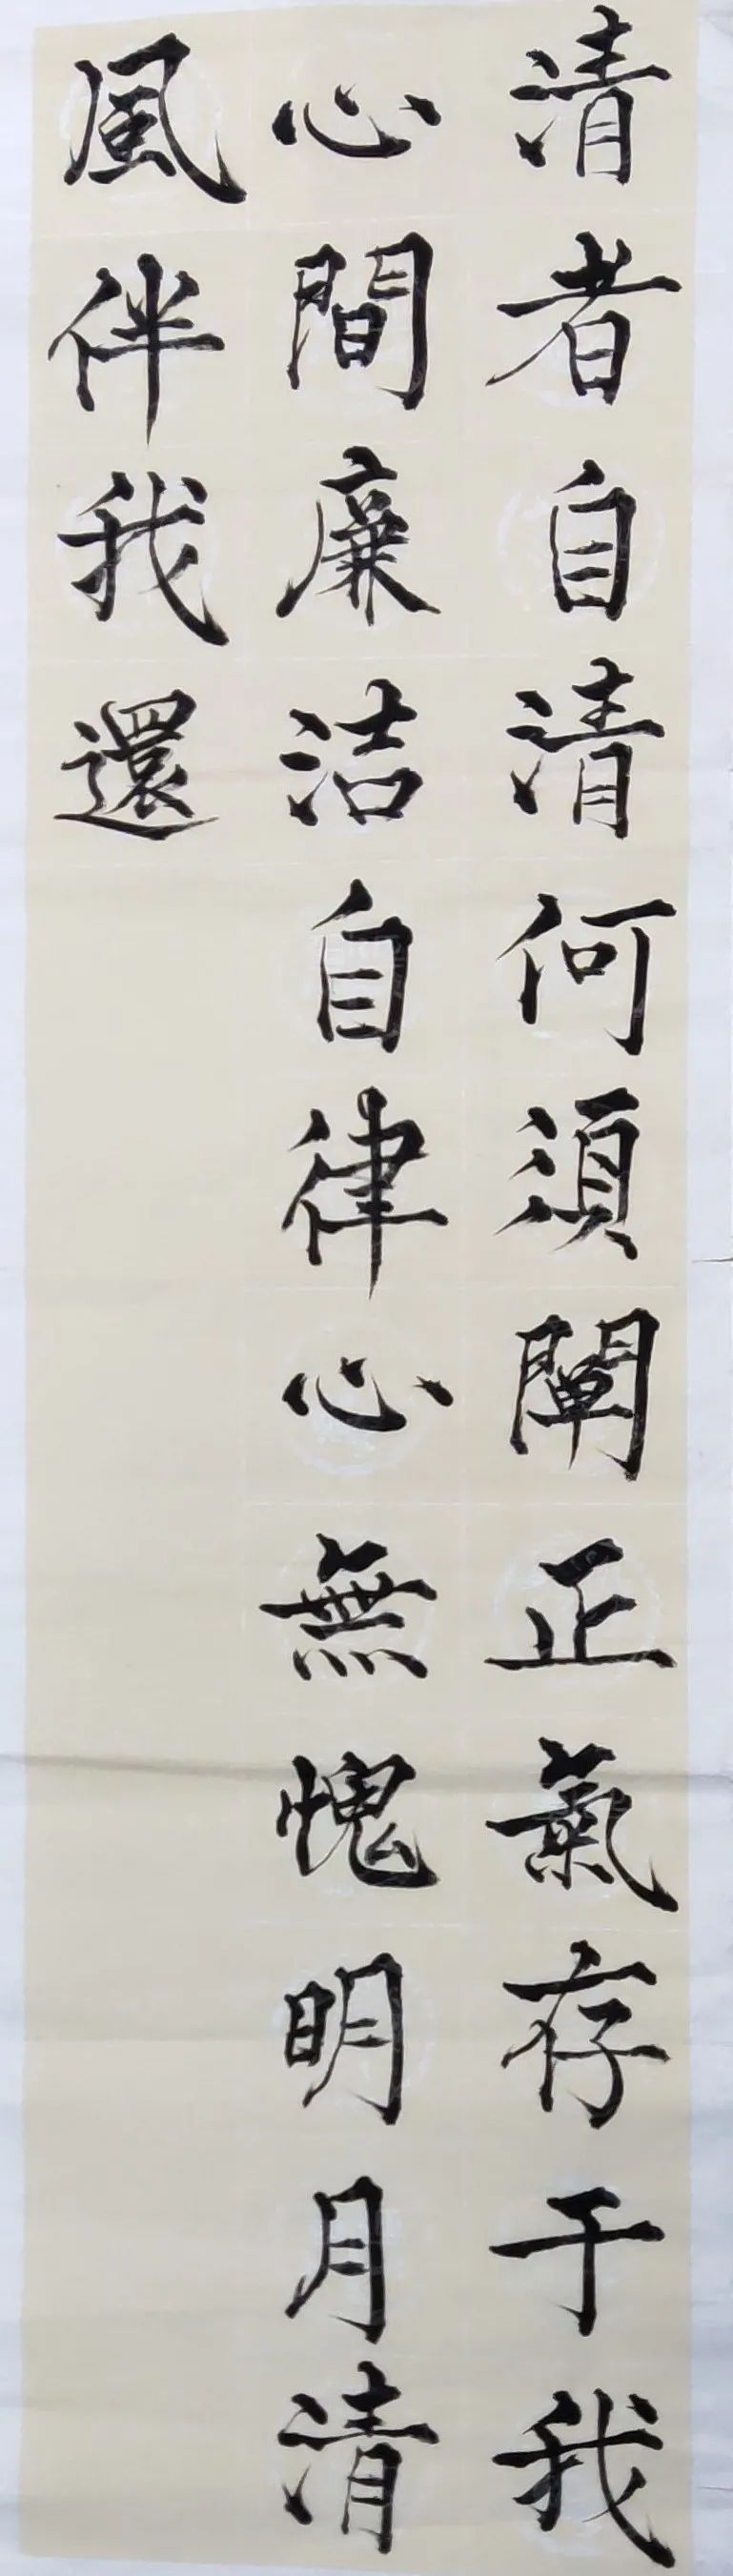 清者自清何須闡正氣存于我
心間廉洁自律心無愧明月清
風伴我還